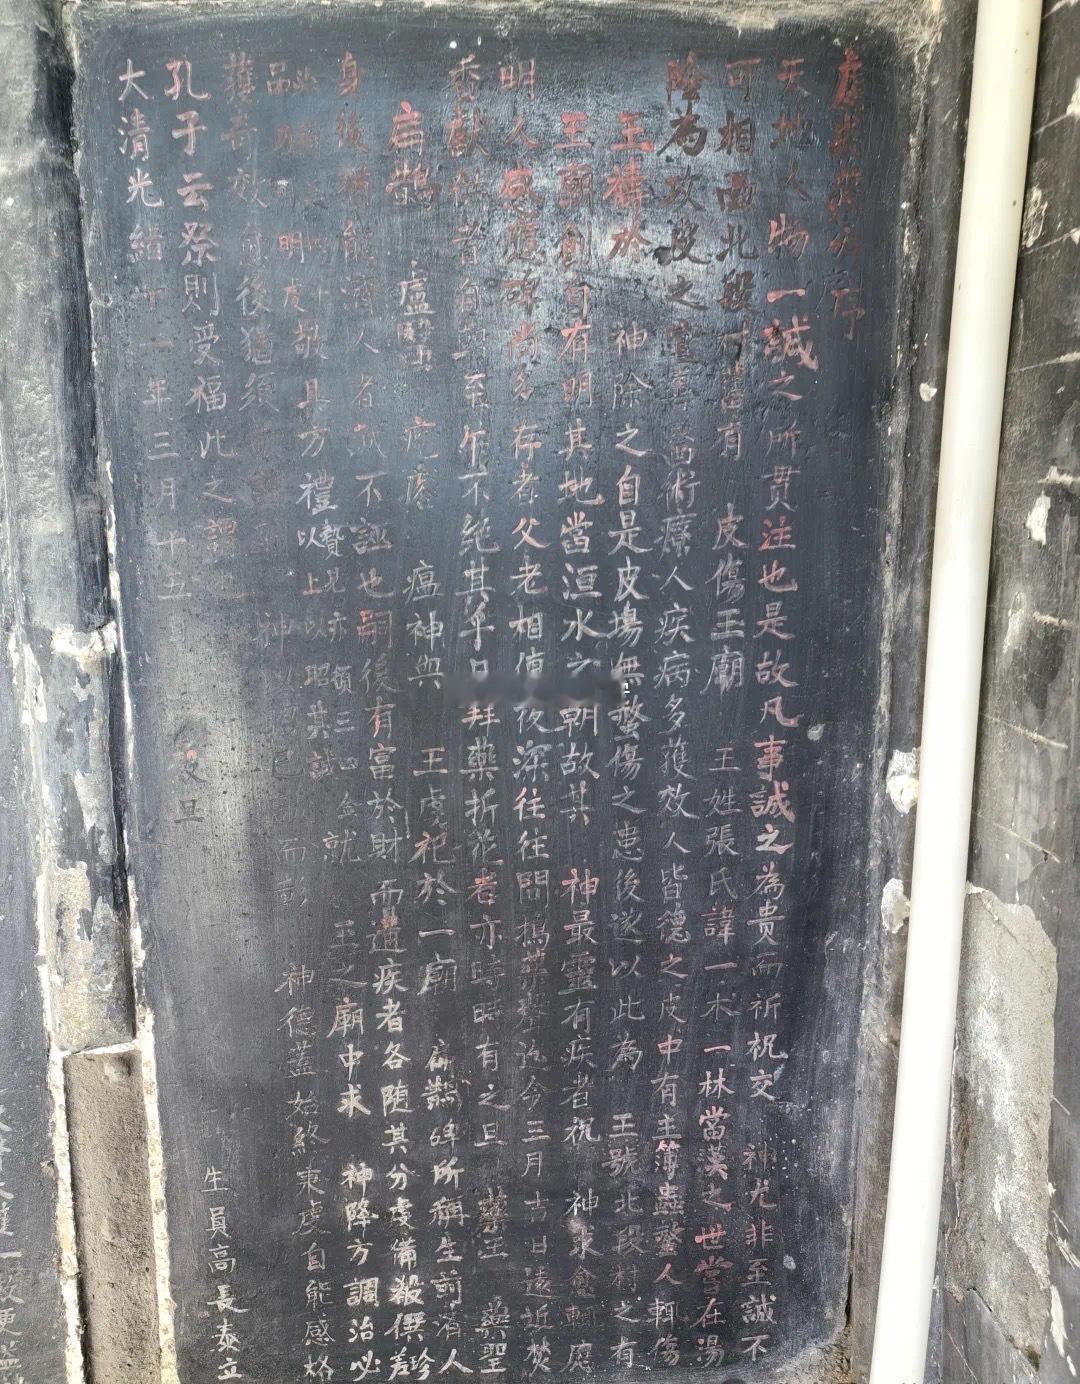 天地人物一誠之所貫注也是故凡事誠之為貴而祈祝交 神尤非至誠不
可相西北段村舊有 皮傷王廟 王姓張氏諱一木一林當漢之世嘗在湯
陰為攻叟之 術療人疾病多獲效人皆德之皮中有主簿蟲螫人輒傷
王禱於 神除之自是皮場無螫傷之患後遂以此為 王號北段村之有
王廟創自有明其地當洹水之朝故其 神最靈有疾者祝 神求愈輒應
明人感應碑尚多存者父老相傳夜深往往聞搗藥聲迄今三月吉日遠近焚
香獻供者自 至午不絕其 拜藥折花者亦時時有之且 藥王 藥聖
扁鵲 盧醫 疙疼 瘟神與 王虔祀於一廟 扁鵲碑所稱生前濟人
身後猶能濟人者誠不誣也嗣後有富於財而遘疾者各隨其分虔備殺饌差珍
品 明友敬具方禮以贄見亦上以昭其誠 三 金就 王之廟中求 神降方調治必
獲奇效愈後猶須 神 而彰 神德蓋始終秉虔自能感格
孔子云祭則受福此之謂也
大清光緒十一年三月十五 日 生員高長泰立